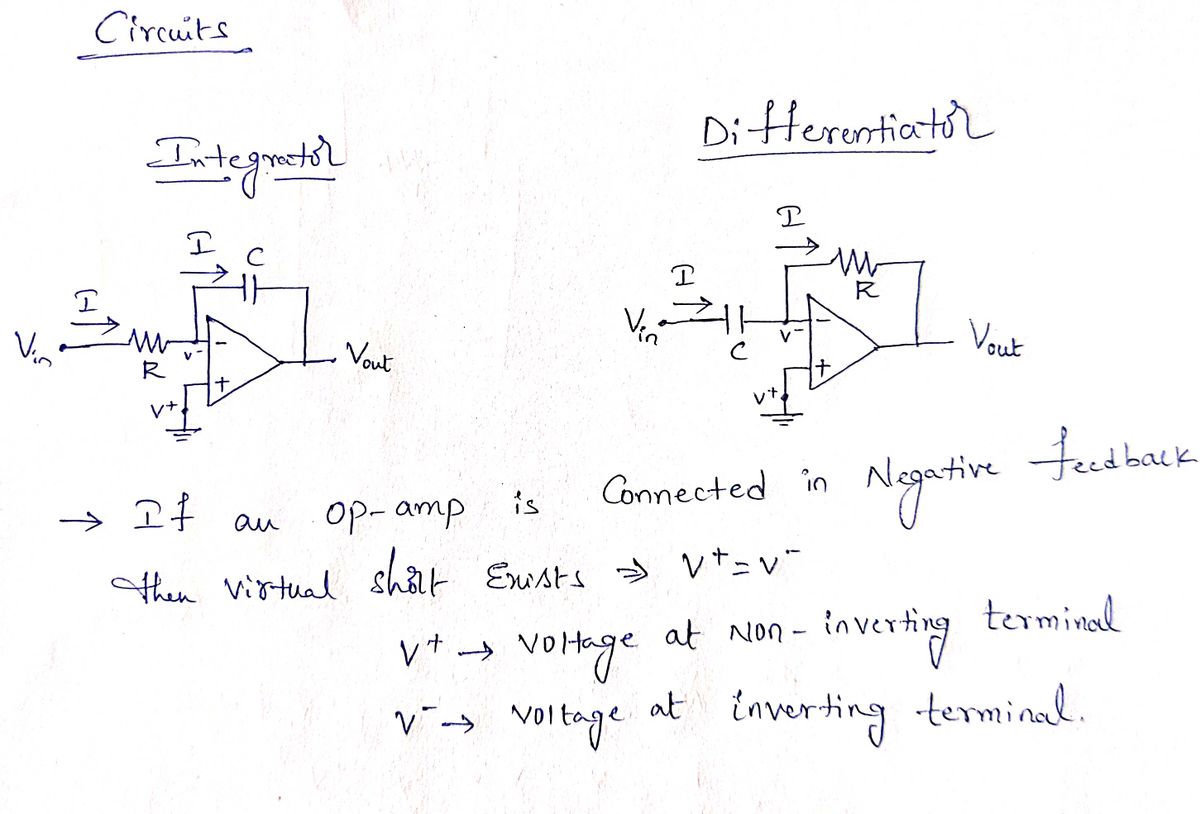 Circuits
Integrator
Differentiator
I
I C
Vin
R
V-
-
+
V+
Vout
I
I
R
Vin
C
V-
-
+
V+
Vout
→ If an op-amp is Connected in Negative feedback
then virtual short Exists ⇒ V+ = V-
V+ → Voltage at Non-inverting terminal
V- → Voltage at inverting terminal.